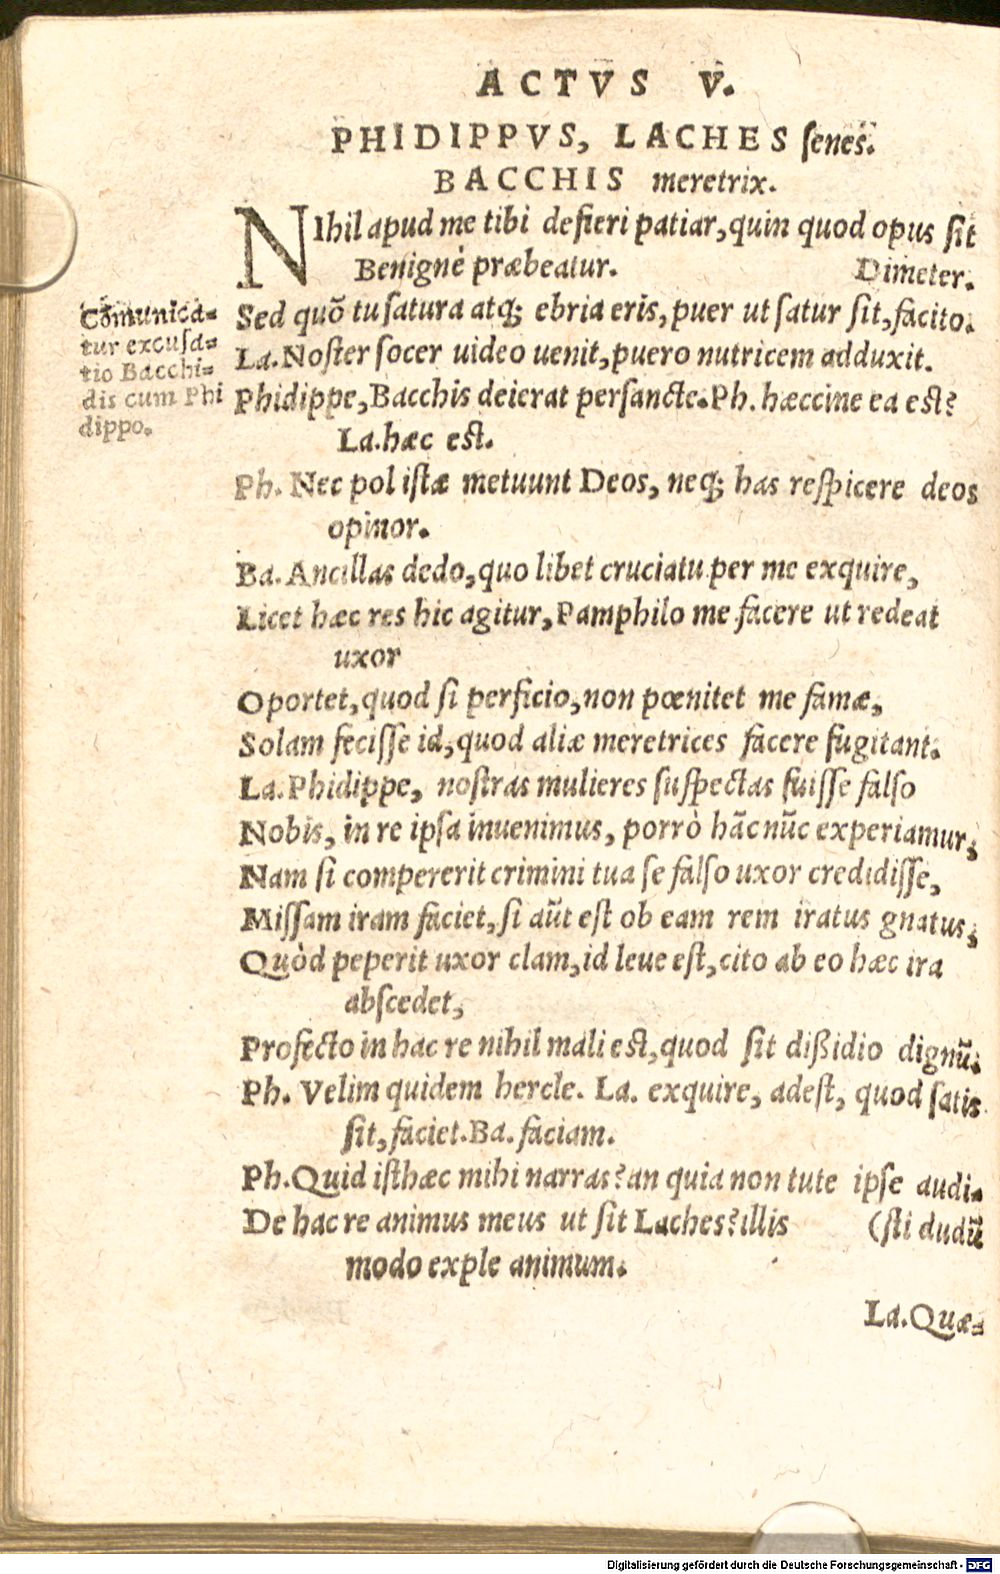 ACTVS V.
PHIDIPPVS, LACHES senes.
BACCHIS meretrix.
NIhil apud me tibi defieri patiar, quin quod opus sit
Benignè præbeatur. Dimeter.
Sed quõ tu satura atq; ebria eris, puer ut satur sit, facito.
La. Noster socer uideo uenit, puero nutricem adduxit.
Phidippe, Bacchis deierat persancte. Ph. hæccine ea est?
La. hæc est.
Cõmunica-
tur excusa-
tio Bacchi-
dis cum Phi
dippo.
Ph. Nec pol istæ metuunt Deos, neq; has respicere deos
opinor.
Ba. Ancillas dedo, quo libet cruciatu per me exquire,
Licet hæc res hic agitur, Pamphilo me facere ut redeat
uxor
Oportet, quod si perficio, non pœnitet me famæ,
Solam fecisse id, quod aliæ meretrices facere fugitant.
La. Phidippe, nostras mulieres suspectas fuisse falso
Nobis, in re ipsa inuenimus, porrò hãc nũc experiamur,
Nam si compererit crimini tua se falso uxor credidisse,
Missam iram faciet, si aũt est ob eam rem iratus gnatus,
Quòd peperit uxor clam, id leue est, cito ab eo hæc ira
abscedet,
Profecto in hac re nihil mali est, quod sit dißidio dignũ.
Ph. Velim quidem hercle. La. exquire, adest, quod satis
sit, faciet. Ba. faciam.
Ph. Quid isthæc mihi narras? an quia non tute ipse audi-
De hac re animus meus ut sit Laches? illis (sti dudũ
modo exple animum.
La. Quæ-
Digitalisierung gefördert durch die Deutsche Forschungsgemeinschaft - DFG